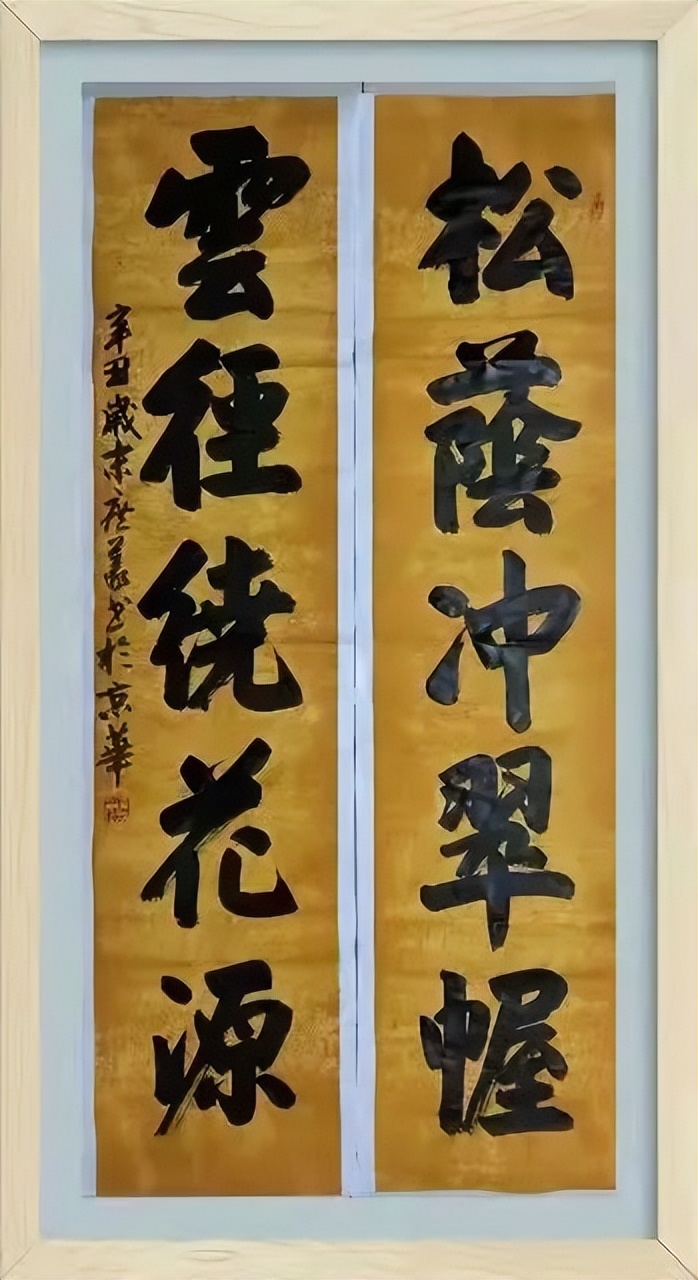 松蔭冲翠幄
雲徑繞花源
辛丑歲末庄义书於京華